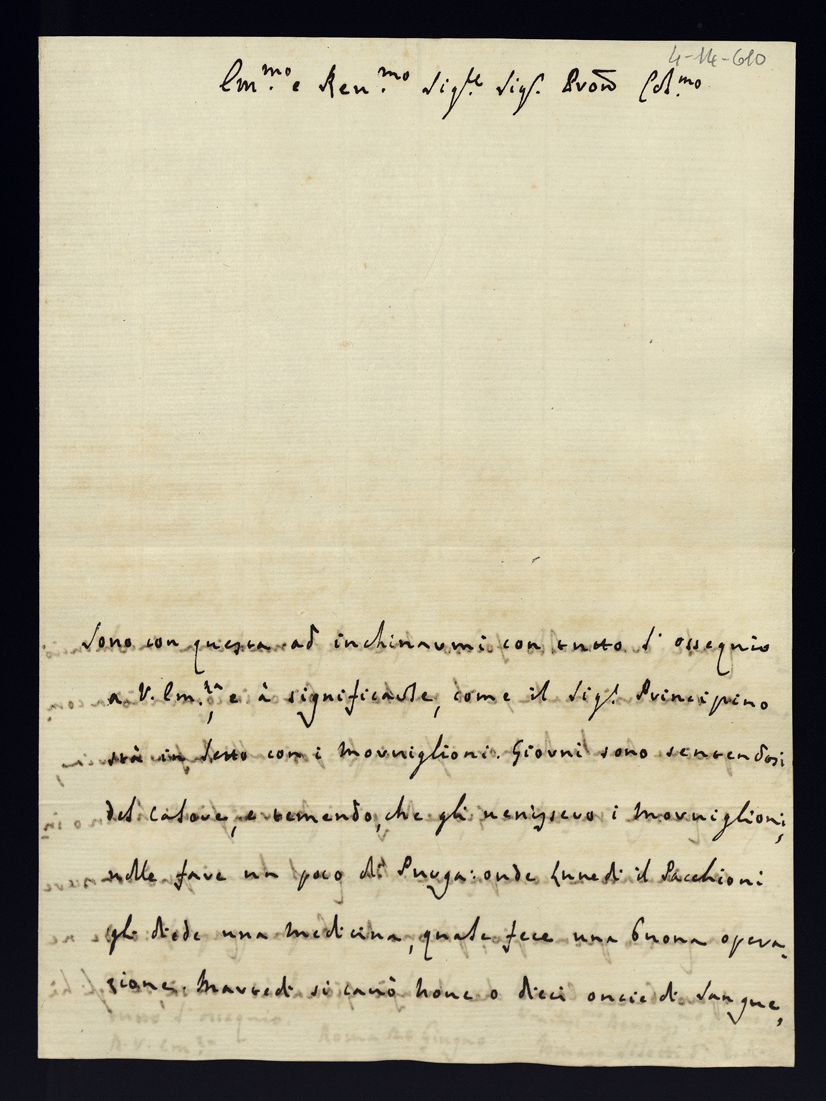 4-14-610
Em.mo e Reu.mo Sig.re Sig.r Pron Col.mo
Sono con questa ad inchinarmi con tutto l'ossequio
a V. Em.za, e à significarle, come il Sig.r Principino
stà in letto con i Morviglioni. Giorni sono sentendosi
del calore, e temendo, che gli venissero i Morviglioni,
volle fare un poco di Purga: onde Lunedi il Pacchioni
gli diede una Medicina, quale fece una buona opera=
zione. Martedi si cauò noue o dieci oncie di Sangue,